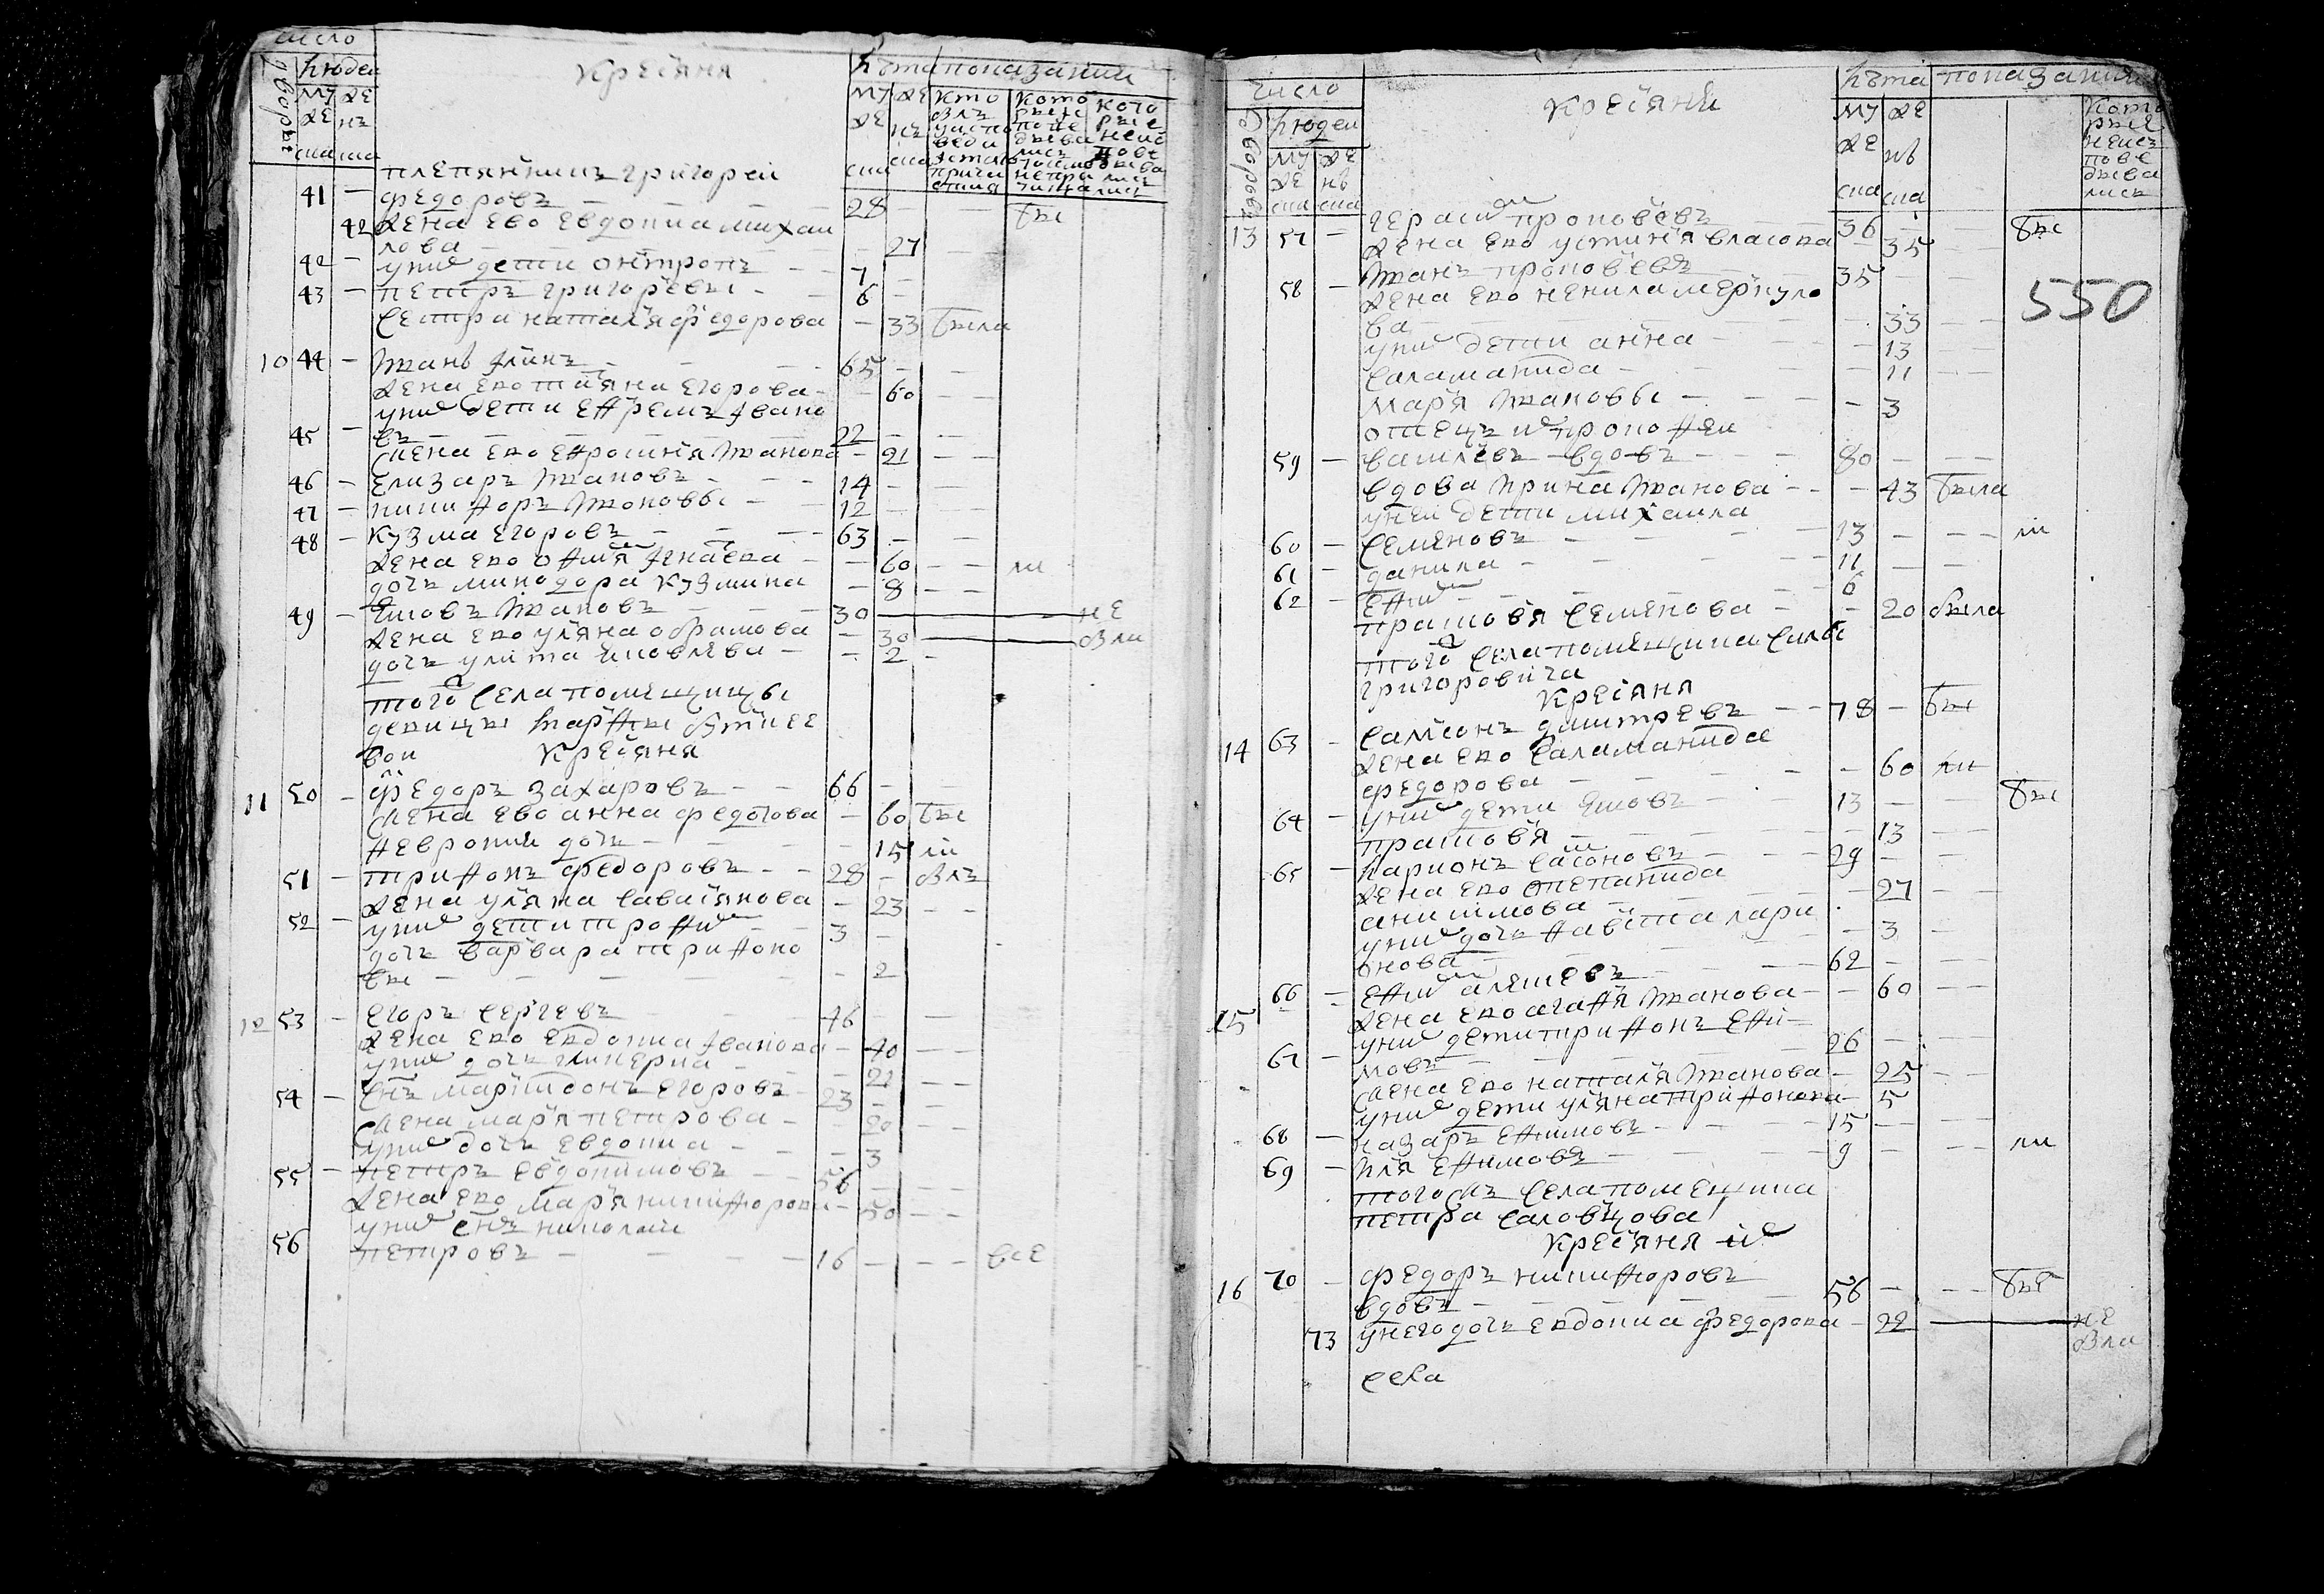 число
дворы
людеи
му же
же нъ
ска ска
Крестьяня
Лета показании
му же
же нъ
ска ска
племянникъ григореи
41 — федоровъ — — — 28 — — бы
42 жена ево евдокиа михаи
лова — — 27 — —
42 — у них дети антропъ — — 7 —
43 — петръ григорьевы — — 6 —
сестра наталья федорова — 33 была
10 44 — Иванъ — — — 65 — —
жена ево татьяна егорова — — 60 — —
у них дети ефремъ Ивано
45 — въ — — — 22 — —
жена ево ефросинья Иванова — 21 — —
46 — елизаръ Ивановъ — — — 14 — —
47 — никифоръ Ивановы — — 12 — —
48 — кузма егоровъ — — — 63 — —
жена ево офимья — — 60 — — ли
дочь минодора кузмина — 8 — —
49 — яковъ Ивановъ — — — 30 — не
жена ево ульяна обрамова — 30 — были
дочь улита яковлева — — 2 —
того села помещицы
девицы марфы
вои Крестьяня
11 50 — федоръ захаровъ — — 66 — —
жена ево анна федотова — 60 бы
феврония дочь — — — 15 ли
51 — трифонъ федоровъ — — 28 — былъ
жена ульяна савастьянова — 23 — —
52 — у них дети трофим — — 3 —
дочь варвара трифоно
вы — — — — — 2
12 53 — егоръ сергеевъ — — — 46 — —
жена ево евдокиа Иванова — 40 — —
у них дочь гликериа — — — 21 — —
54 — снъ егоровъ — 23 — —
жена марья петрова — — 20 — —
у них дочь евдокиа — — — 3
55 — петръ евдокимовъ — 56 — —
жена ево марья никифорова — 50 — —
у них снъ николаи
56 петровъ — — — — 16 — — — все
число
дворовъ
людеи
му же
же нъ
ска ска
крестьяня
лета показания
му же
же нъ
ска ска
кото
рые
неис
пове
дыва
лись
550
13 57 — герасим прокофьевъ — — 36 — — бы
жена ево устинья власова — 35 — —
58 — Иванъ прокофьевъ — — 35 — —
жена ево ненила меркуло
ва — — — — 33 — —
у них дети анна — — — — 13 — —
саламанида — — — — 11 — —
марья Ивановы — — — — 3
отецъ их прокофеи
59 — васильевъ вдовъ — — 80 — —
вдова ирина Иванова — — — 43 была
у неи дети михаила
60 — семеновъ — — — 13 — — — ли
61 — данила — — — — 11 — —
62 — ефим — — — 6
прасковья семенова — — 20 была
того села помещика силы
григоровича
Крестьяня
14 63 — самсонъ дмитревъ — — 78 — бы
жена ево саламанида
федорова — — — 60 ли
64 — у них дети яковъ — — 13 — бы
прасковья — — — — 13 — —
65 — ларионъ самсоновъ — — — 29 — —
жена ево степанида
анисимова — — — — 27 — —
у них дочь лари
онова — — — — 3 —
66 — ефим алексеевъ — 62 — — —
15 жена ево агафья Иванова — — 60 — —
у них дети трифонъ ефи
67 — мовъ — — — — 26 — — —
жена ево наталья Иванова — 25 — —
у них дети ульяна трифонова — 5
68 — назаръ ефимовъ — — — 15 — —
69 — илья ефимовъ — — — 9 — — — ли
того жъ села помещика
петра саловцова
Крестьяня их
16 70 — федоръ никифоровъ — — — бы
вдовъ — — — — 56 —
73 у него дочь евдокиа федорова — 22 — не
были
села